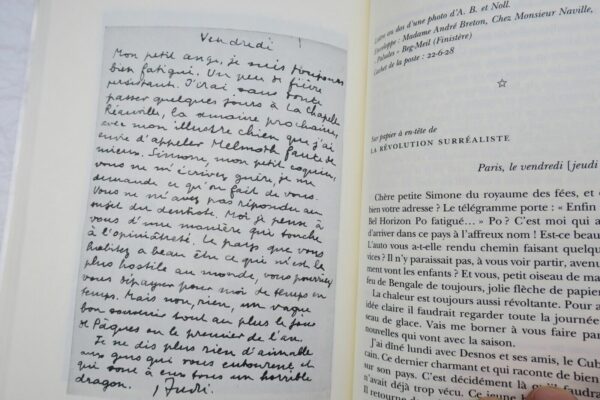 Vendredi
Mon petit ange, je suis toujours
bien fatigué. Un peu de fièvre
persistant. J'irai, sans doute
passer quelques jours à La Chapelle
Réanville, la semaine prochaine,
avec mon illustre chien que j'ai
envie d'appeler Helmoth faute de
mieux. Simone, mon petit coquin,
vous ne m'écrivez guère, je me
demande ce qu'on fait de vous.
Vous ne m'avez pas répondu au
sujet du dentiste. Moi je pense à
vous d'une manière qui touche
à l'opiniâtreté. Le pays que vous
habitez a beau être ce qu'il n'est le
plus hostile au monde, vous pourriez
vous épayer pour moi de temps en
temps. Mais non, rien, un vague
bon souvenir tout au plus le jour
de Pâques ou le premier de l'an.
Je ne dis plus rien d'aimable
aux gens qui vous entourent et
qui sont à eux tous un horrible
dragon.
Lettre au dos d'une photo d'A. B. et Noll.
Enveloppe : Madame André Breton, Chez Monsieur Naville,
Paludes - Beg-Meil (Finistère)
Cachet de la poste : 22-6-28
☆
Sur papier à en-tête de
LA RÉVOLUTION SURRÉALISTE
Paris, le vendredi [jeudi
Chère petite Simone du royaume des fées, et
bien votre adresse ? Le télégramme porte : « Enfin
Bel Horizon Po fatigué... » Po ? C'est moi qui a
d'arriver dans ce pays à l'affreux nom ! Est-ce beau
L'auto vous a-t-elle rendu chemin faisant quelque
vices ? Il n'y paraissait pas, à vous voir partir. Com
vont les enfants ? Et vous, petit oiseau de ma
feu de Bengale de toujours, jolie flèche de papier
La chaleur est toujours aussi révoltante. Pour a
idée claire il faudrait regarder toute la journée
seau de glace. Vais me borner à vous faire part
nouvelles qui vont avec la saison.
J'ai dîné lundi avec Desnos et ses amis, le Cub
cain. Ce dernier charmant et qui raconte de bien
sur son pays. C'est décidément là qu'il faudra
avait déjà trop vécu. Ce jeune
Il retourne d